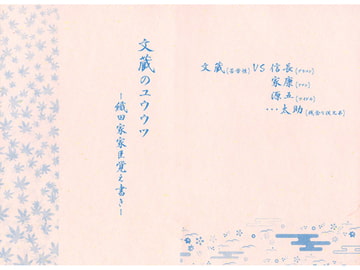 文蔵のユウウツ
-織田家家臣覚え書き-
文蔵(苦労性) VS 信長
家康
源五
…太助